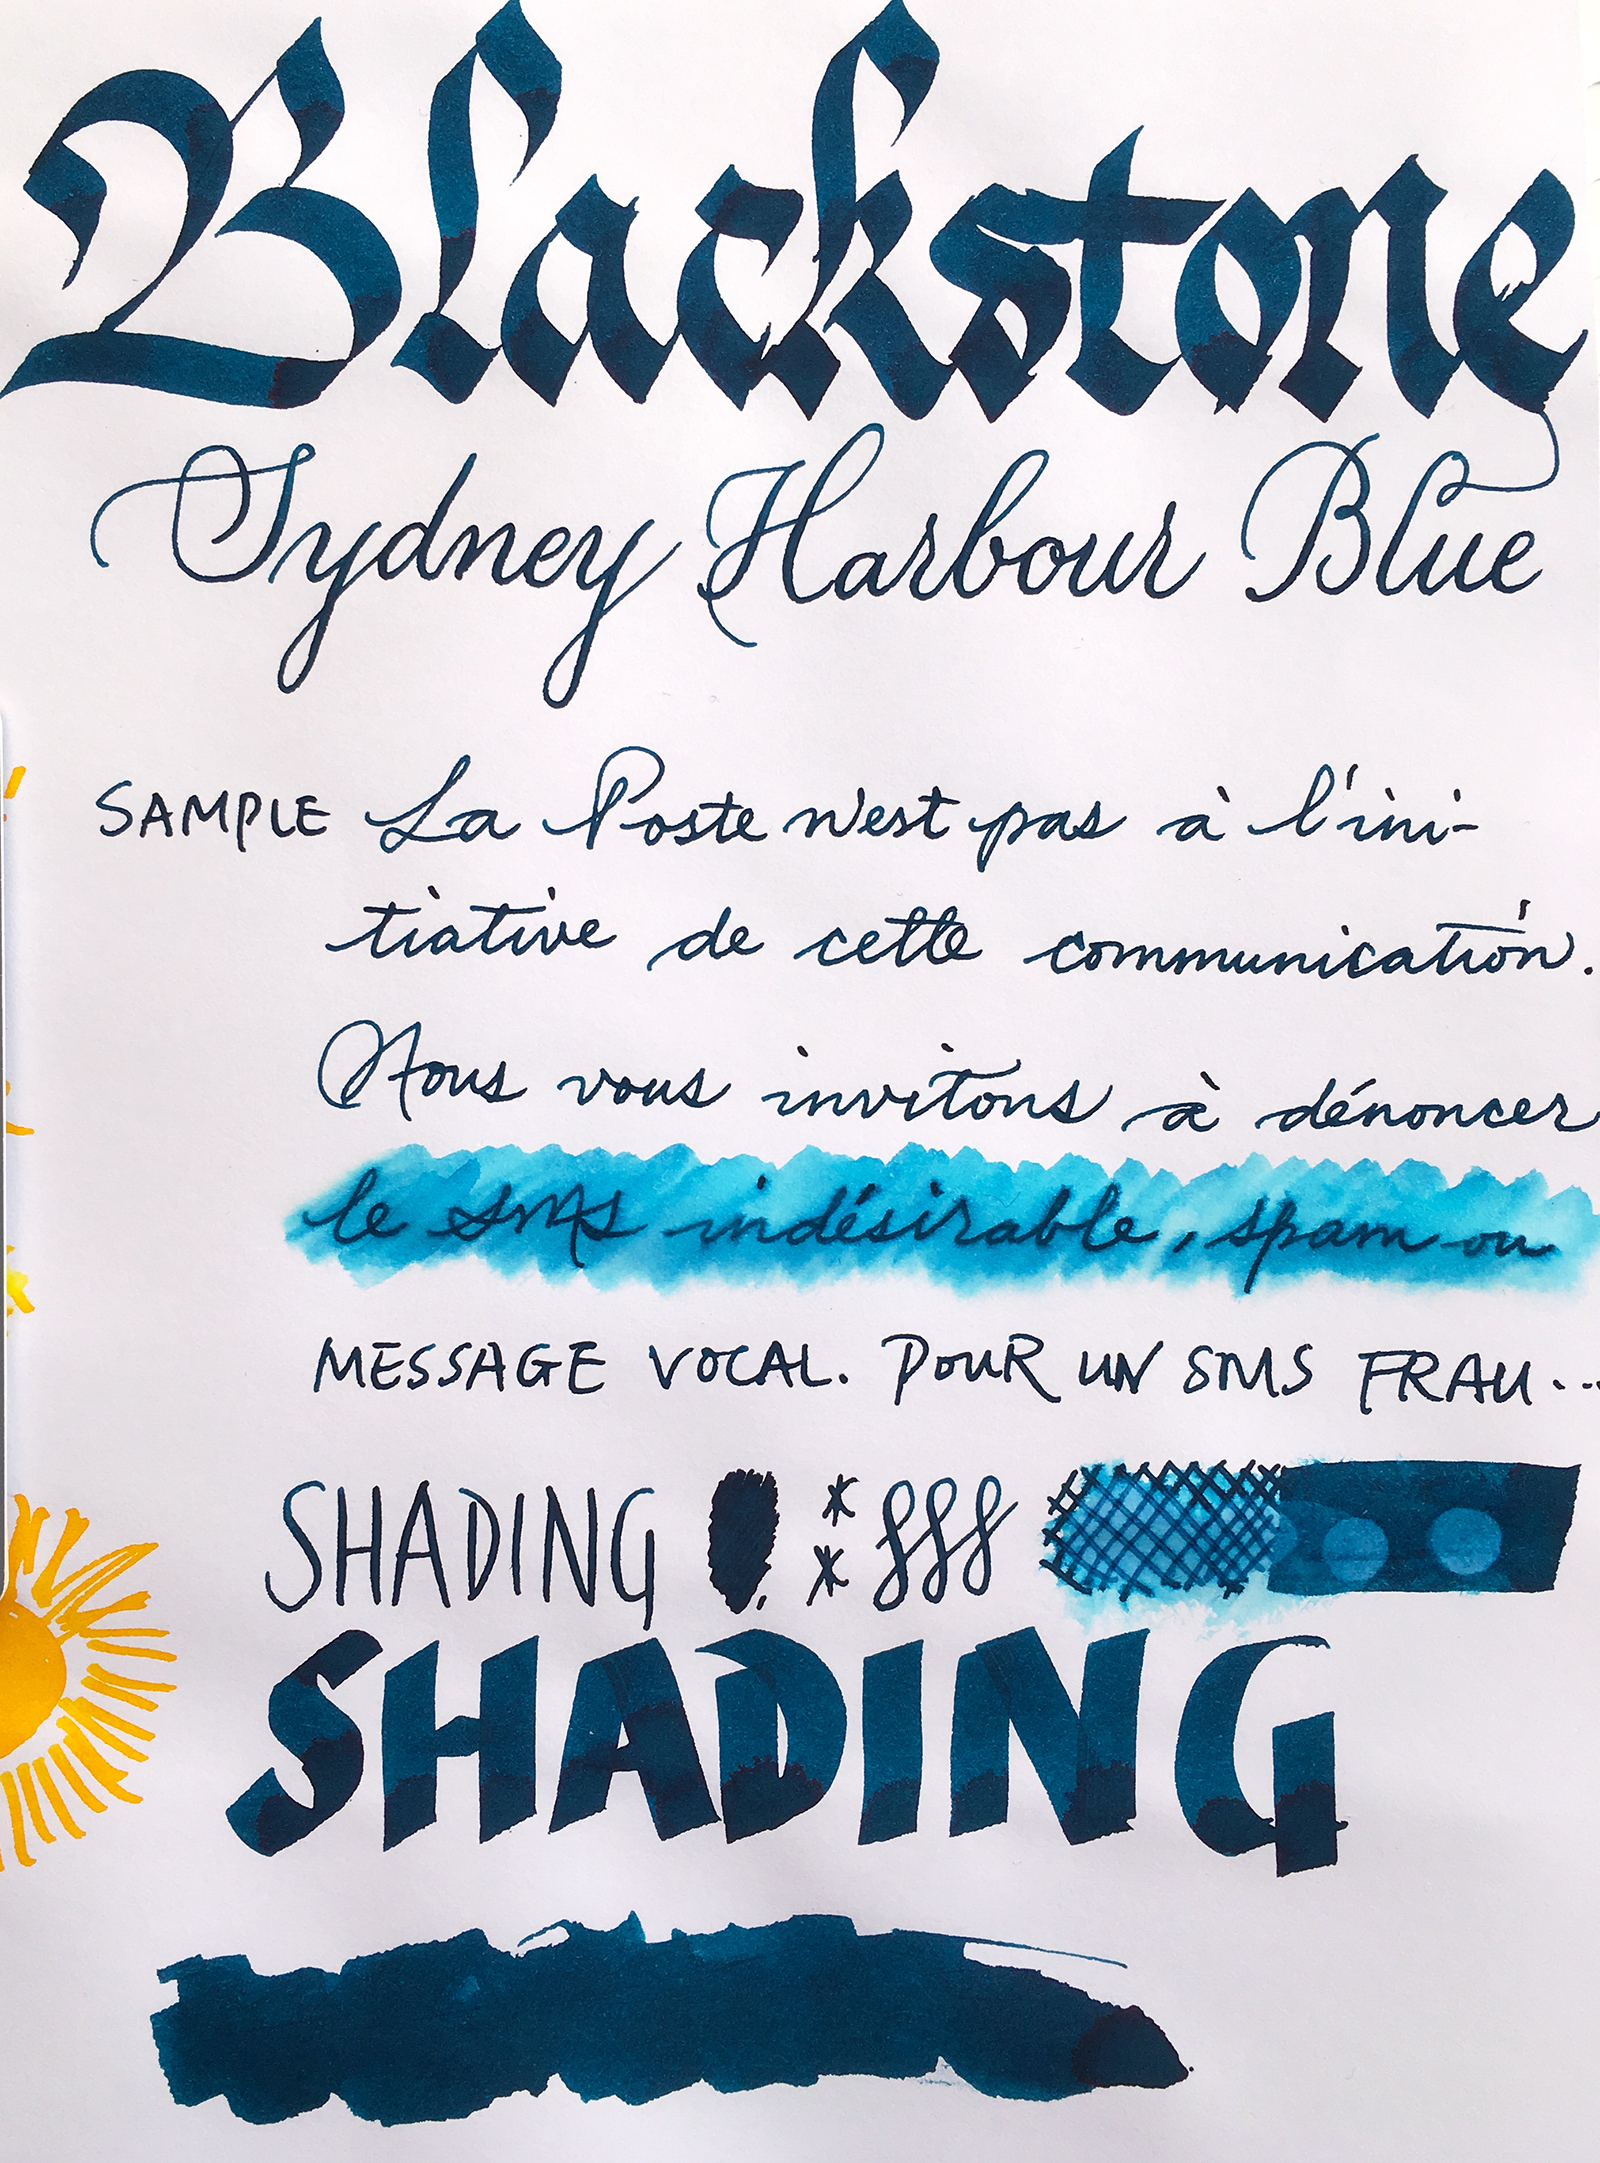 Blackstone
Sydney Harbour Blue
SAMPLE La Poste n'est pas à l'ini-
tiative de cette communication.
Nous vous invitons à dénoncer
le SMS indésirable, spam ou
MESSAGE VOCAL. POUR UN SMS FRAU...
SHADING
SHADING